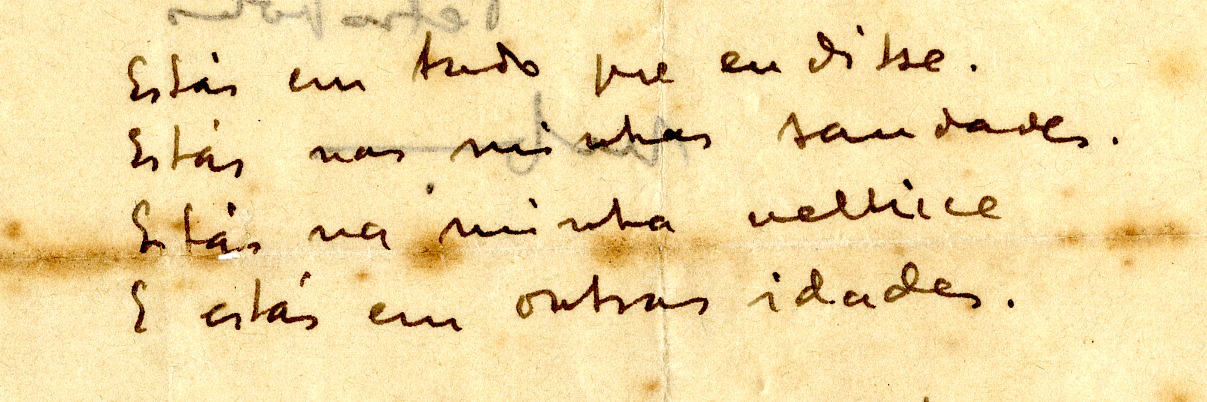 Estás em tudo que eu disse.
Estás nas minhas saudades.
Estás na minha velhice
E estás em outras idades.